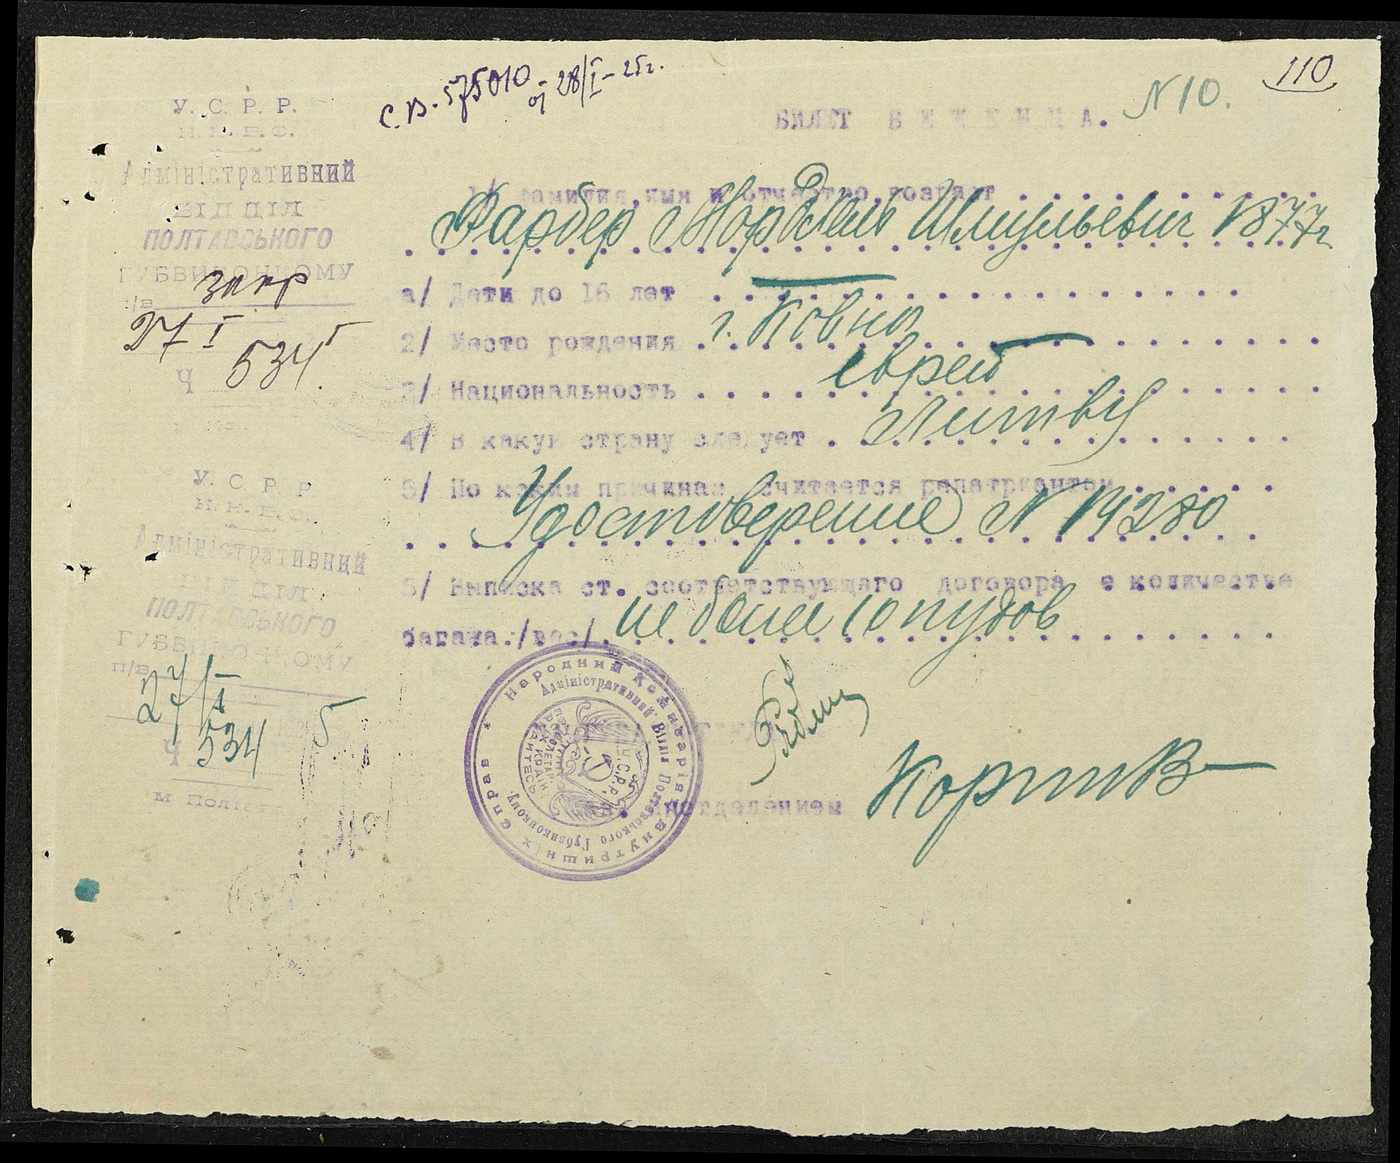 110
С.В. 575010
от 28/I-25г.
БИЛЕТ БЕЖЕНЦА. N 10.
У. С. Р. Р.
Н. К. В. С.
Адміністративний
ВІДДІЛ
ПОЛТАВСЬКОГО
ГУБВИКОНКОМУ
п/в закр
27 I 5
Ч 534.
1/ Фамилия, имя и отчество, возраст . . . . . . . . .
Фарбер Мордхель Шмульевич 1877г.
а/ Дети до 16 лет . . . . . . . . . . . . . .
2/ Место рождения . г. Ковно . . . . . . . .
3/ Национальность . . . . еврей . . . . . . .
4/ В какую страну следует . Литву . . . . . .
5/ По каким причинам считается репатриантом . . . .
Удостоверение N 19280
6/ Выписка ст. соответствующаго договора о количестве
багажа./вес/. не более 10 пудов
У. С. Р. Р.
Н. К. В. С.
Адміністративний
ВІДДІЛ
ПОЛТАВСЬКОГО
ГУБВИКОНКОМУ
п/в
27/I 5
Ч 534
м Полтава
Народний Комісаріят внутришніх справ *
Адміністративний Відділ Полтавського Губвиконкому.
У.С.Р.Р.
подотделением